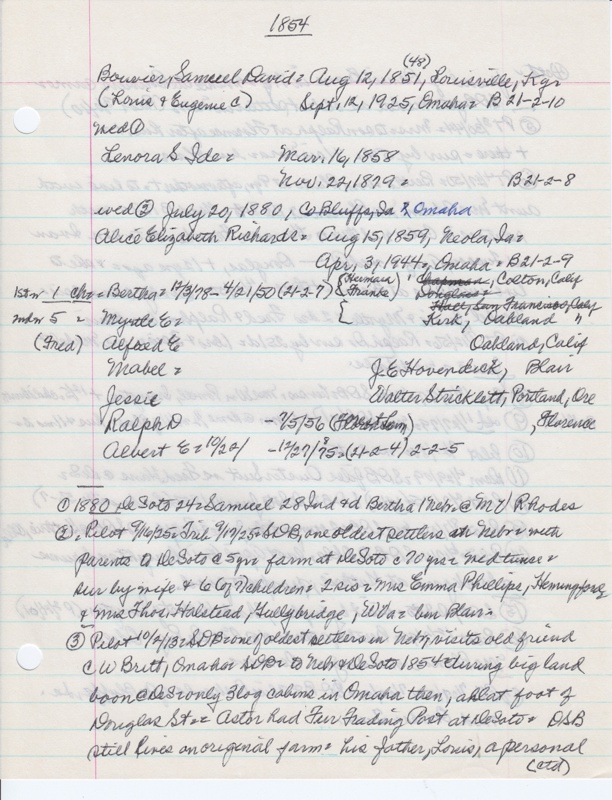 1854
(48)
Bouvier, Samuel David = Aug 12, 1851, Louisville, Ky =
(Louis & Eugenie C) Sept, 12, 1925, Omaha = B 21-2-10
med ①
Lenora S. Ide = Mar. 16, 1858
Nov. 22, 1879 = B 21-2-8
wed ② July 20, 1880, Co Bluffs, Ia & Omaha
Alice Elizabeth Richards = Aug 15, 1859, Neola, Ia =
Apr, 3, 1944 = Omaha = B 21-2-9
1st = 1 ch = Bertha = 12/3/78 - 4/21/50 (21-2-7) { Franke } Colton, Calif
San Francisco, Calif
2nd = 5 = Myrtle E = { Kirk, Oakland "
(Fred) Alfred E Oakland, Calif
Mabel = J. E Hovendick, Blair
Jessie Walter Stricklett, Portland, Ore
Ralph D - 7/5/56 , Florence
Albert E = 10/22/ - 12/27/75 = (21-2-4) 2-2-5
① 1880, DeSoto 24 = Samuel 28 Ind & d Bertha 1 Nebr @ M V Rhodes
② = Pilot 9/16/25 = Trib 9/17/25 = SDB, one oldest settlers Nebr = with
parents to DeSoto @ 5 yr = farm at DeSoto c 70 yrs = wed twice =
sur by wife & 6 (of 7) children = 2 sis = Mrs Emma Phillips, Hemingford,
& Mrs Thos. Halstead, , W Va = bur Blair =
③ Pilot 10/2/13 = SDB one of oldest settlers in Nebr, visits old friend
C W Britt, Omaha = SDB = to Nebr & DeSoto 1854 = during big land
boon @ DeS = only 3 log cabins in Omaha then, all at foot of
Douglas St = = Astor had Fur Trading Post at DeSoto = DSB
still lives on original farm = his father, Louis, a personal
(ctd)